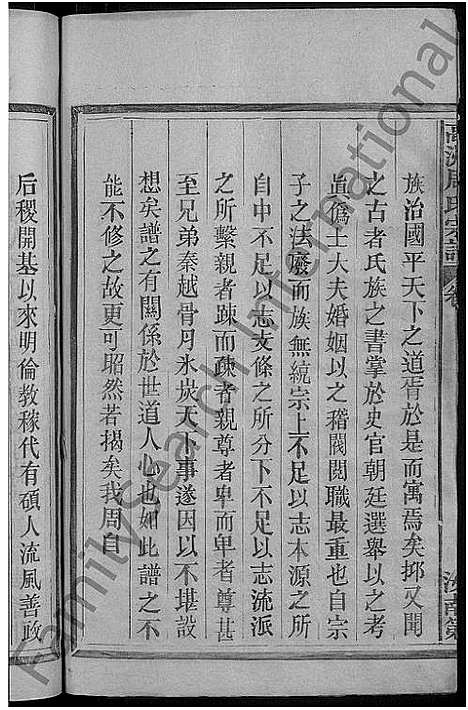 周氏宗譜
族治國平天下之道胥於是而寓焉矣抑又聞
之古者氏族之書掌於史官朝廷選舉以之考
眞僞士大夫婚姻以之稽閥閱職最重也自宗
子之法廢而族無統宗上不足以志本源之所
自中不足以志支條之所分下不足以志流派
之所繫親者疎而疎者親尊者卑而卑者尊甚
至兄弟秦越骨月氷炭天下事遂因以不堪設
想矣譜之有關係於世道人心也如此譜之不
能不修之故更可昭然若揭矣我周自
后稷開基以來明倫教稼代有碩人流風善政
FamilySearch International